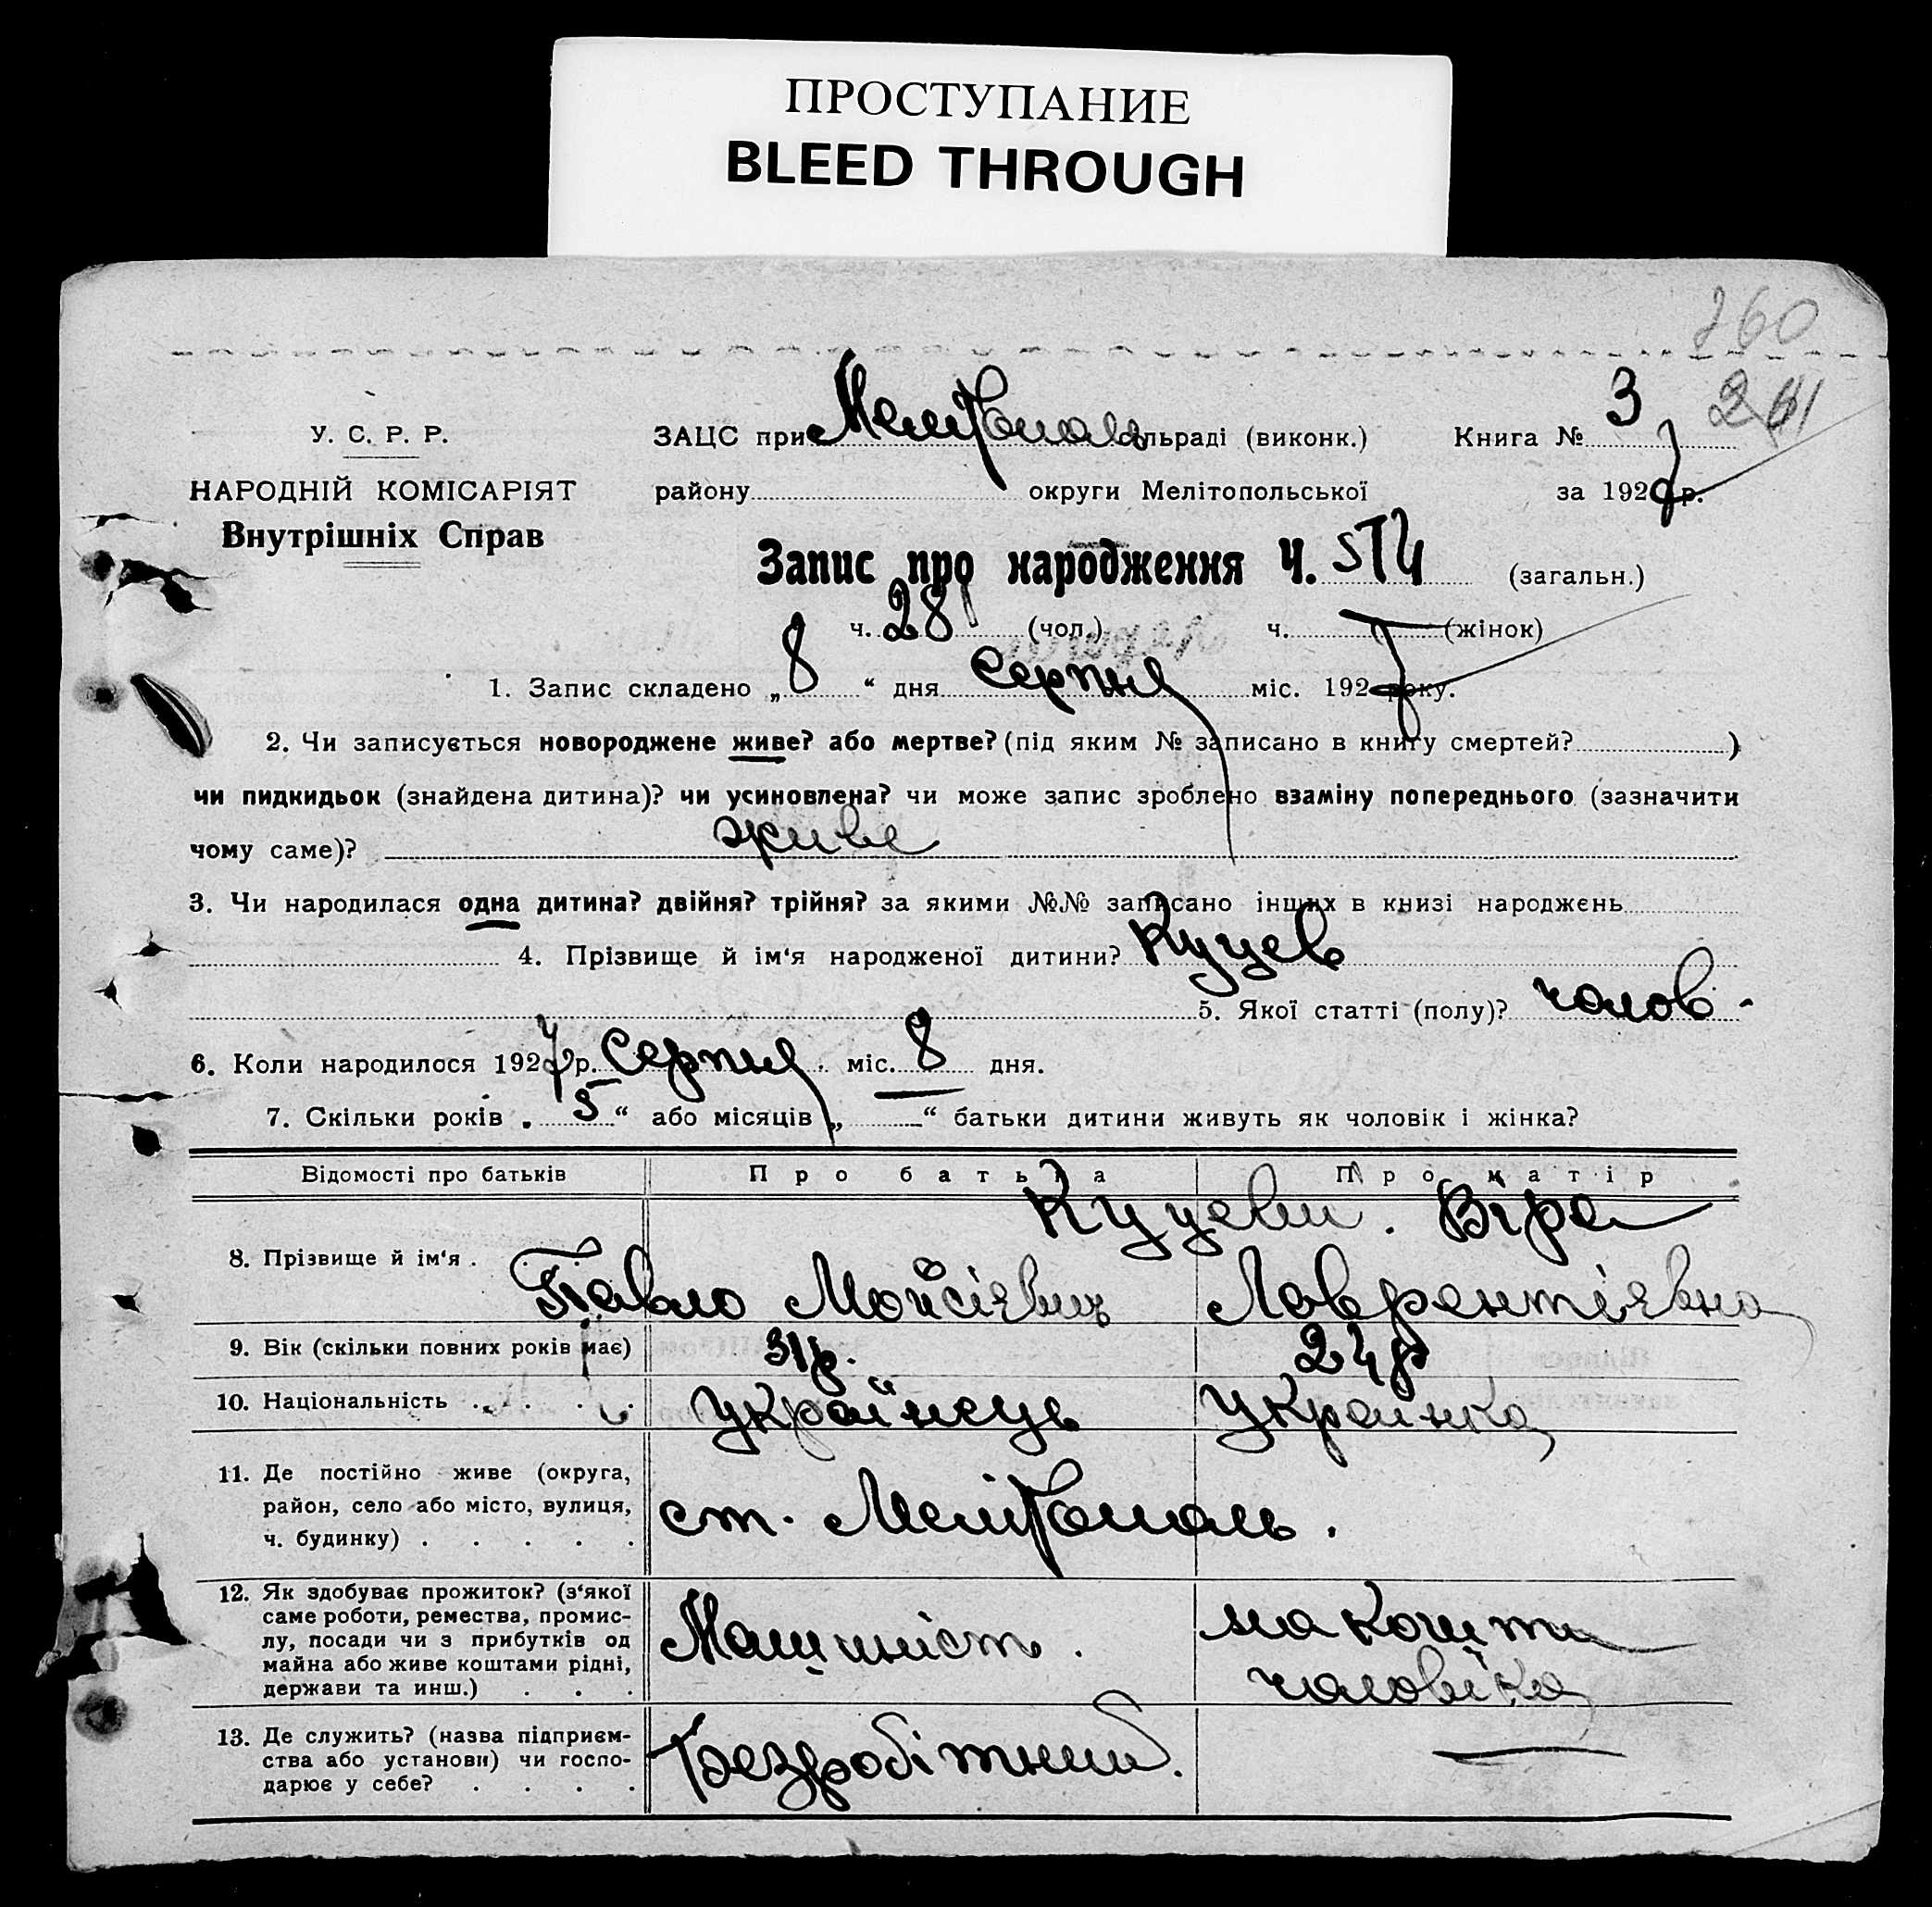 ПРОСТУПАНИЕ
BLEED THROUGH
260
У. С. Р. Р.
НАРОДНІЙ КОМІСАРІЯТ
Внутрішніх Справ
ЗАЦС при Мелітополь сільраді (виконк.) Книга № 3 241
району округи Мелітопольської за 1927 р.
Запис про народження Ч. 514 (загальн.)
ч. 28 (чол.) ч. (жінок)
1. Запис складено „8“ дня Серпня міс. 1927 року.
2. Чи записується новороджене живе? або мертве? (під яким № записано в книгу смертей? )
чи пидкидьок (знайдена дитина)? чи усиновлена? чи може запис зроблено взаміну попереднього (зазначити
чому саме)? живе
3. Чи народилася одна дитина? двійня? трійня? за якими №№ записано інших в книзі народжень
4. Прізвище й ім‘я народженої дитини? Куцев
5. Якої статті (полу)? чолов-
6. Коли народилося 1927 р. Серпня міс. 8 дня.
7. Скільки років „5“ або місяців „—“ батьки дитини живуть як чоловік і жінка?
Відомості про батьків Про батька Про матір
8. Прізвище й ім‘я . Куцеви. Віра
Павло Мойсієвич Лаврентієвна
9. Вік (скільки повних років має) 31р. 24р
10. Національність . . . . українець українка
11. Де постійно живе (округа,
район, село або місто, вулиця,
ч. будинку) . . . . .
ст. Мелітополь.
12. Як здобуває прожиток? (з‘якої
саме роботи, ремества, промис-
лу, посади чи з прибутків од
майна або живе коштами рідні,
держави та инш.) . . .
Машиніст. на кошти
чоловіка
13. Де служить? (назва підприєм-
ства або установи) чи госпо-
дарює у себе? . . . .
безробітний. —